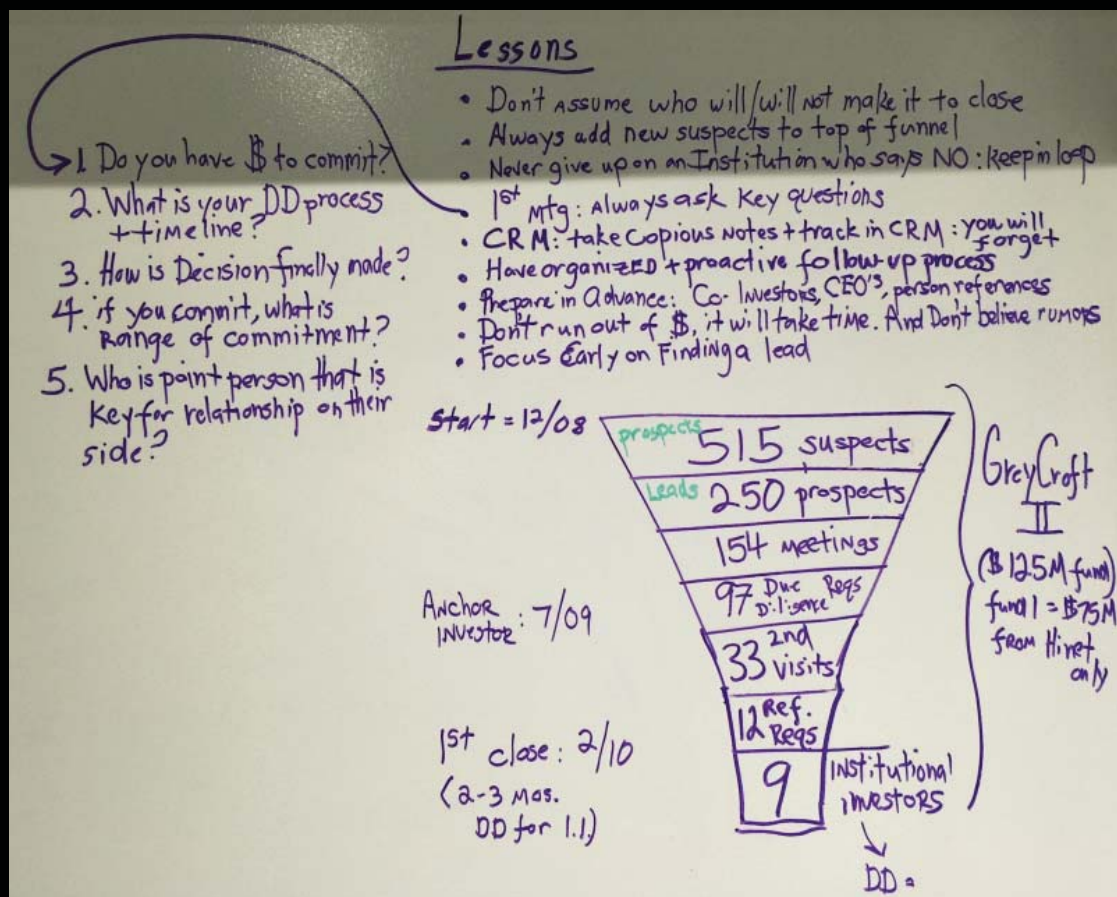 Lessons
• Don't Assume who will/will not make it to close
• Always add new suspects to top of funnel
• Never give up on an Institution who says NO: keep in loop
• 1st Mtg: Always ask key questions
• CRM: take copious notes + track in CRM: you will
forget
• Have organizED + proactive follow-up process
• Prepare in Advance: Co-Investors, CEO'S, person references
• Don't run out of $, it will take time. And Don't believe rumors
• Focus Early on Finding a lead
1. Do you have $ to commit?
2. What is your DD process
+ timeline?
3. How is Decision finally made?
4. if you commit, what is
Range of commitment?
5. Who is point person that is
Key for relationship on their
side?
Start = 12/08
prospects 515 suspects
Leads 250 prospects
154 Meetings
97 Due Diligence Reqs
33 2nd visits
12 Ref. Reqs
9
Institutional
investors
DD =
Anchor
investor: 7/09
1st close: 2/10
(2-3 mos.
DD for 1.1.)
GreyCroft
II
($125M fund)
fund 1 = $75M
from Hinet
only